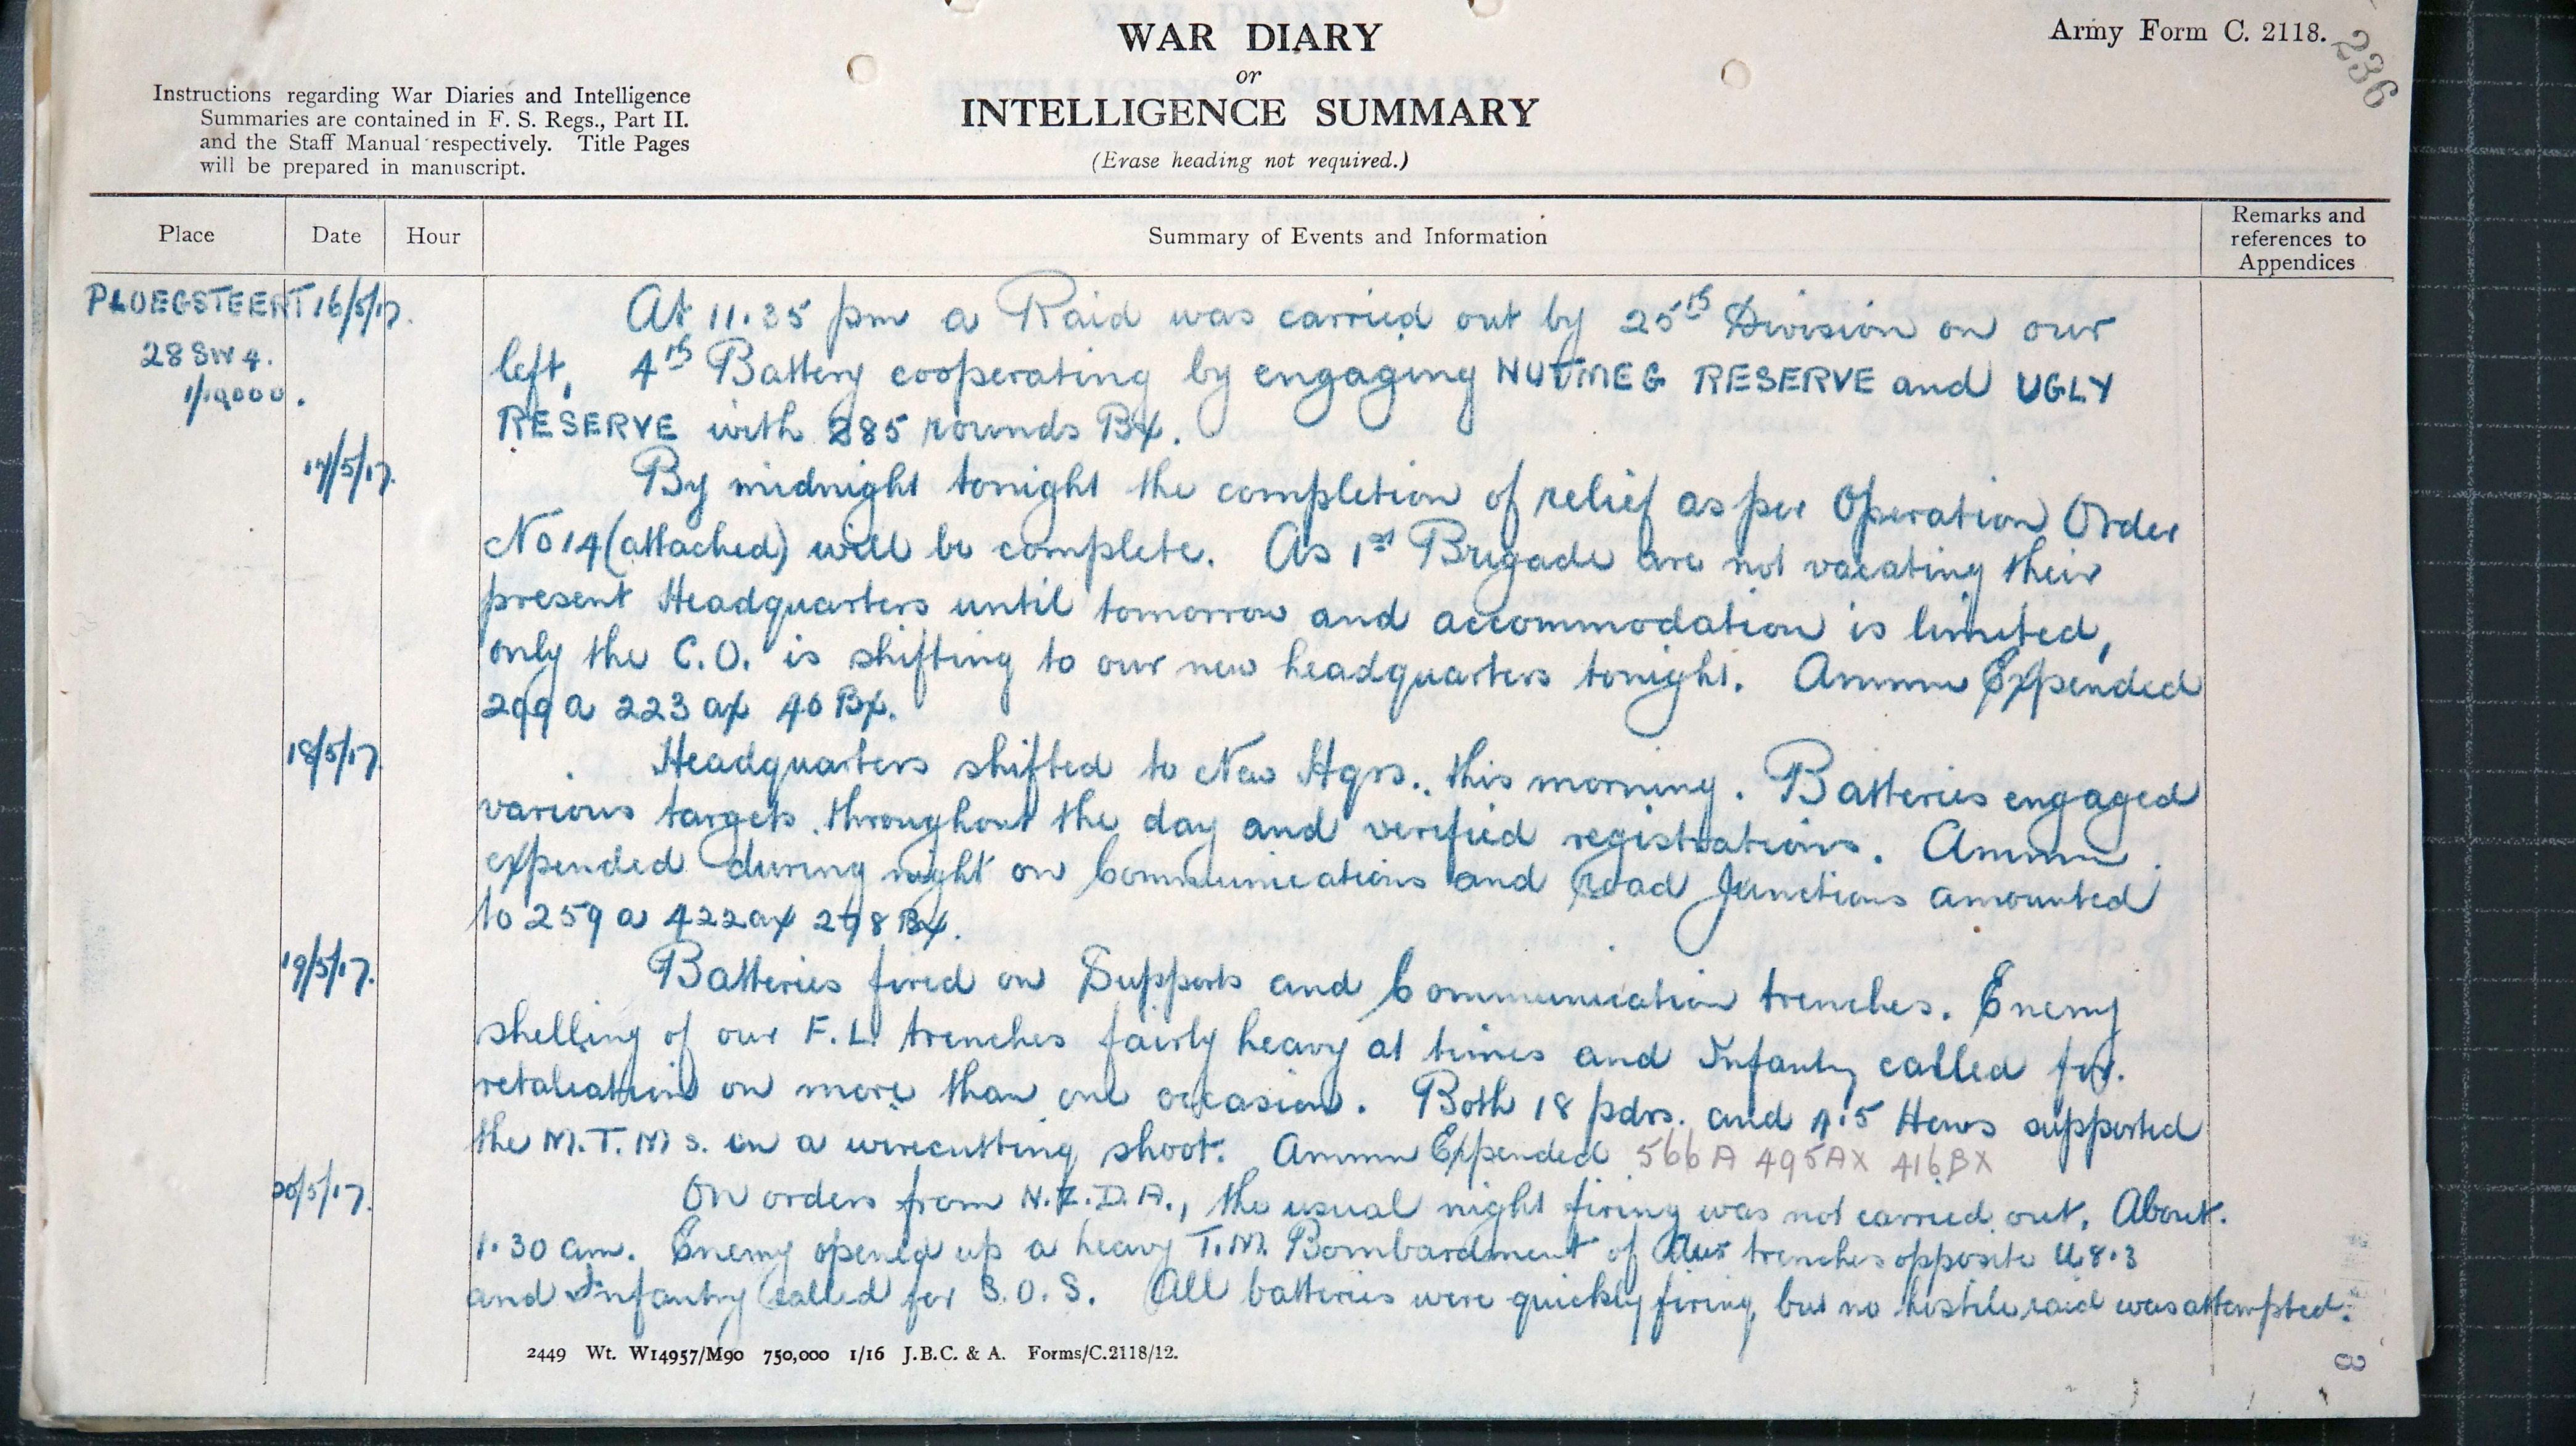 WAR DIARY
or
INTELLIGENCE SUMMARY
(Erase heading not required.)
Army Form C. 2118.
236
Instructions regarding War Diaries and Intelligence
Summaries are contained in F. S. Regs., Part II.
and the Staff Manual respectively. Title Pages
will be prepared in manuscript.
Place
Date
Hour
Summary of Events and Information
Remarks and
references to
Appendices
PLOEGSTEERT
28 SW 4.
1/10,000.
16/5/17.
At 11.35 pm a Raid was carried out by 25th Division on our
left, 4th Battery cooperating by engaging NUTMEG RESERVE and UGLY
RESERVE with 285 rounds BX.
17/5/17.
By midnight tonight the completion of relief as per Operation Order
No 14 (attached) will be complete. As 1st Brigade are not vacating their
present Headquarters until tomorrow and accommodation is limited,
only the C.O. is shifting to our new headquarters tonight. Ammn Expended
299 A 223 AX 40 BX.
18/5/17.
Headquarters shifted to New Hqrs. this morning. Batteries engaged
various targets throughout the day and verified registrations. Ammn
expended during night on Communications and Road Junctions amounted
to 259 A 422 AX 278 BX.
19/5/17.
Batteries fired on Supports and Communication trenches. Enemy
shelling of our F.L. trenches fairly heavy at times and Infantry called for
retaliation on more than one occasion. Both 18 pdrs. and 4.5 Hows supported
the M.T.M s. in a wirecutting shoot. Ammn Expended 566A 495AX 416BX
20/5/17.
On orders from N.Z.D.A., the usual night firing was not carried out. About
1.30 am. Enemy opened up a heavy T.M. Bombardment of our trenches opposite U 8.3
and Infantry called for S.O.S. All batteries were quickly firing, but no hostile raid was attempted.
2449 Wt. W14957/M90 750,000 1/16 J.B.C. & A. Forms/C.2118/12.